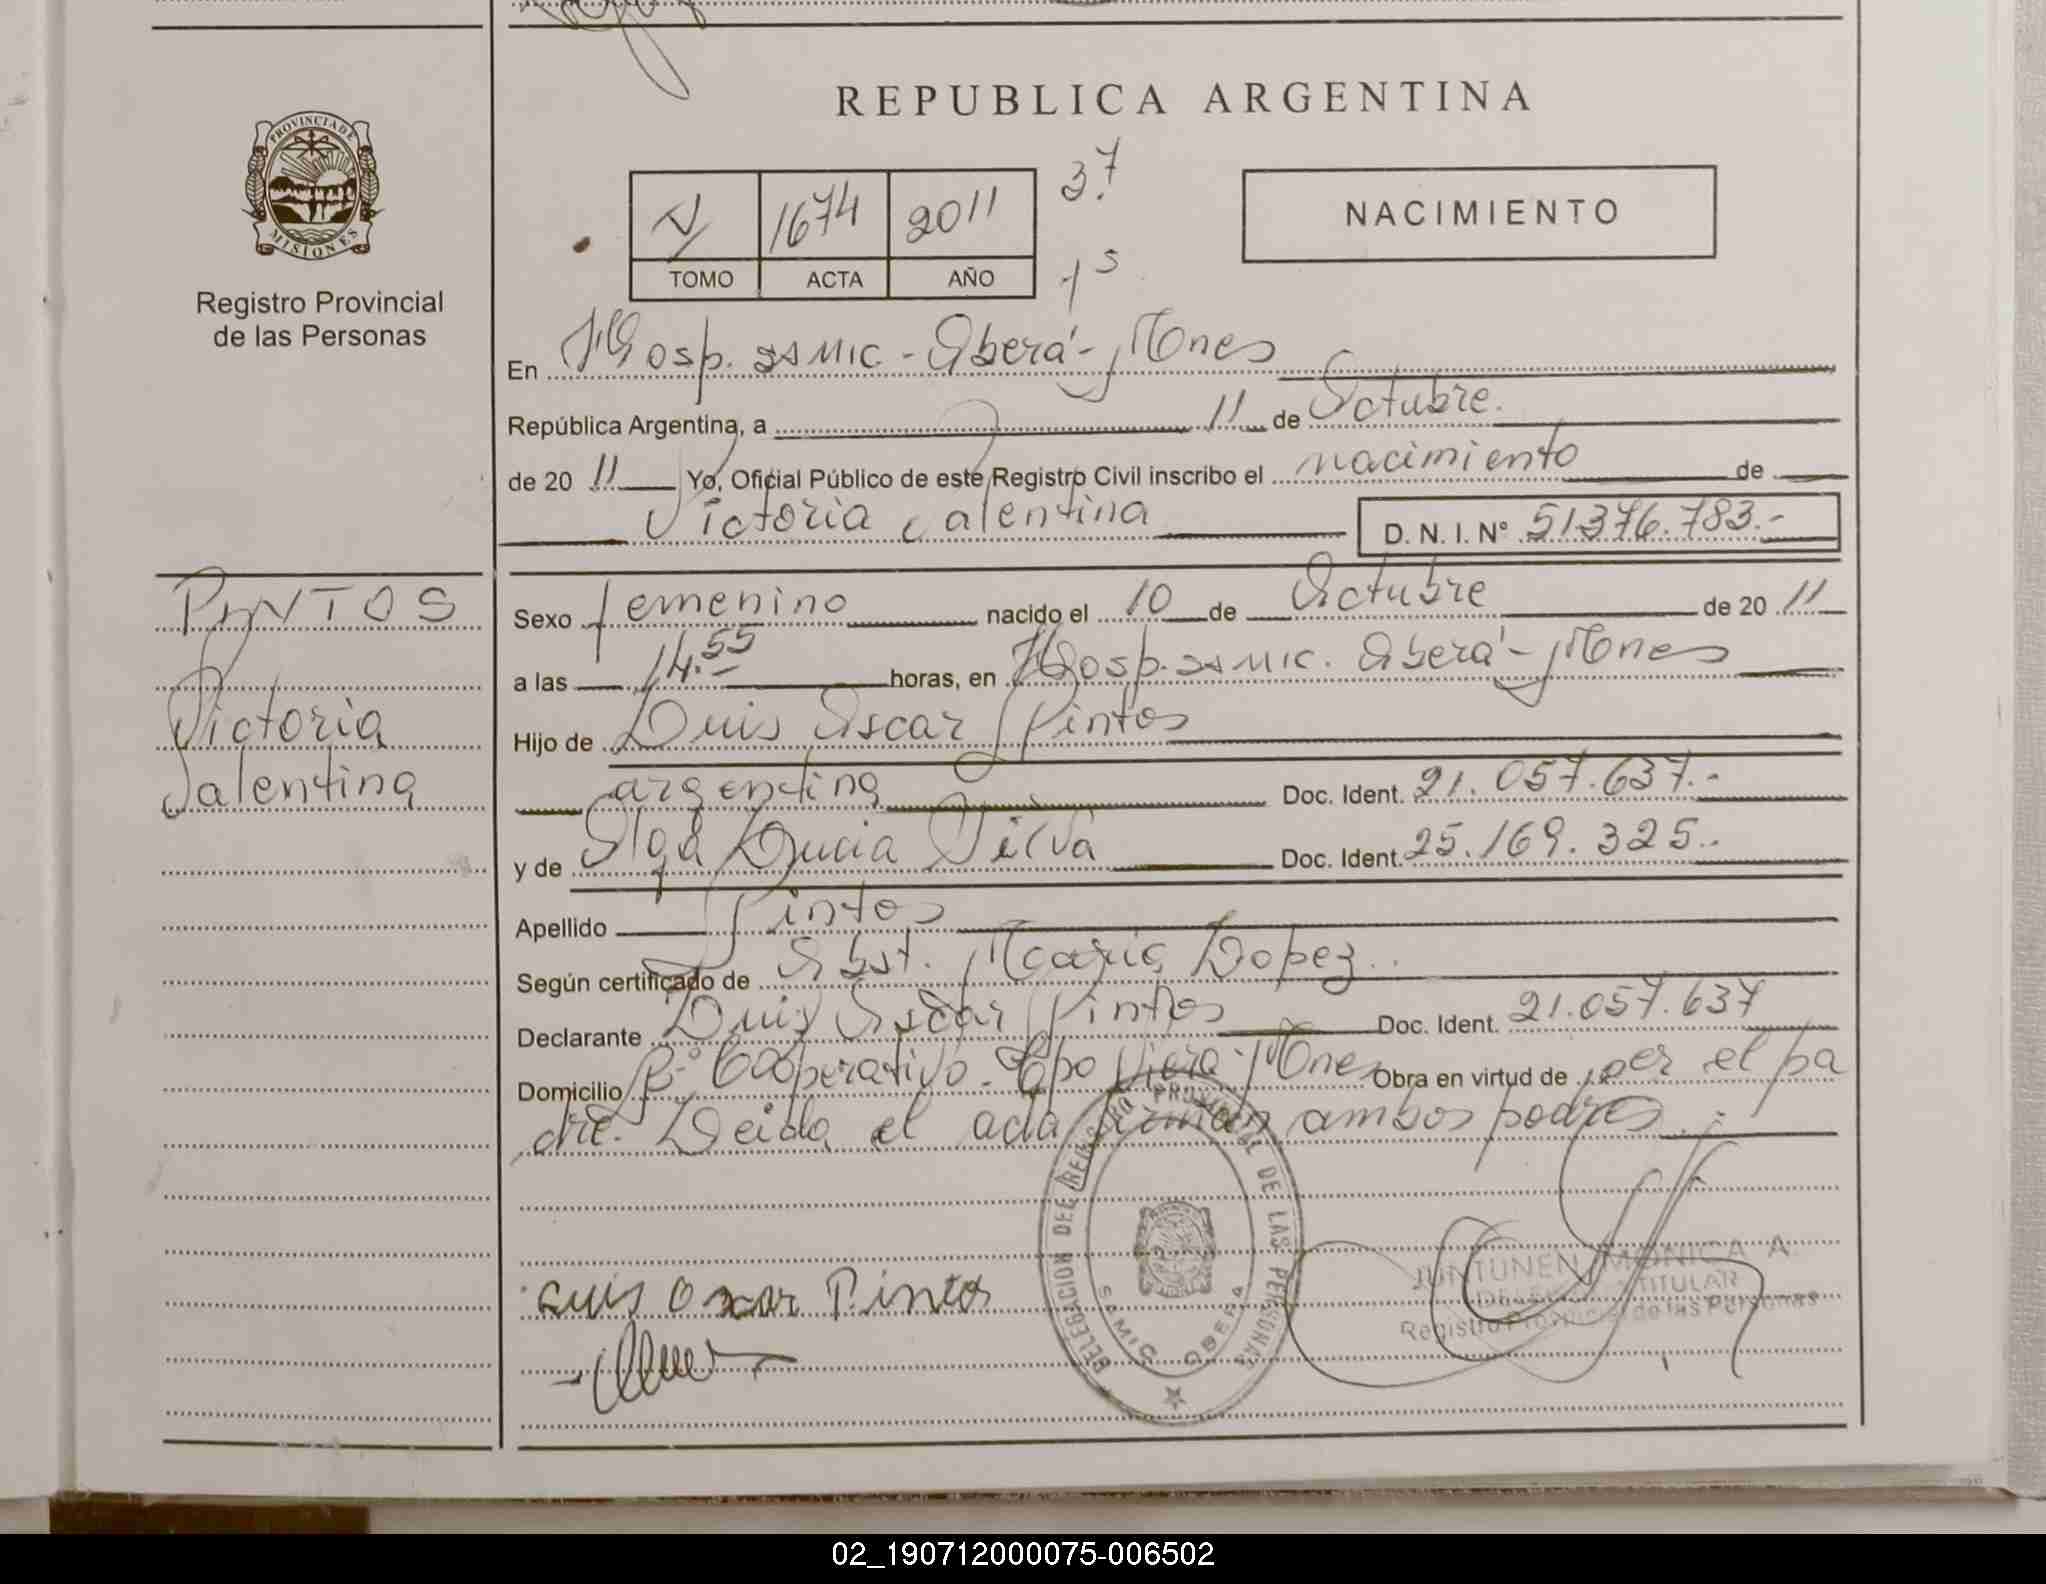 REPUBLICA ARGENTINA
PROVINCIA DE
MISIONES
Registro Provincial
de las Personas
V 1674 2011
TOMO ACTA AÑO
NACIMIENTO
En Hosp. SAMIC - Oberá - Mones
República Argentina, a 11 de Octubre.
de 20 11 Yo, Oficial Público de este Registro Civil inscribo el nacimiento de
Victoria Valentina D. N. I. Nº 51.376.783.-
PINTOS
Victoria
Valentina
Sexo femenino nacido el 10 de Octubre de 20 11
a las 14.55 horas, en Hosp. SAMIC. Oberá - Mones
Hijo de Luis Oscar Pintos
argentina Doc. Ident. 21.057.637.-
y de Olga Lucia Silva Doc. Ident. 25.169.325.-
Apellido Pintos
Según certificado de Obst. Maria Lopez.
Declarante Luis Oscar Pintos Doc. Ident. 21.057.637
Domicilio Bº Cooperativo - Cpo Viera - Mones Obra en virtud de ser el pa
dre. Leida el acta firman ambos padres.
Luis Oscar Pintos
DELEGACION DEL REGISTRO PROVINCIAL DE LAS PERSONAS
SAMIC OBERA
JUNTUNEN MONICA A.
TITULAR
Registro Provincial de las Personas
02_190712000075-006502